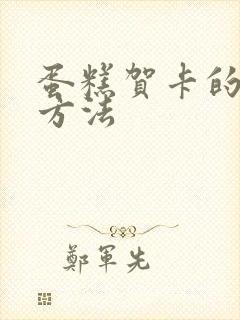 蛋糕賀卡的
方法
鄭軍先